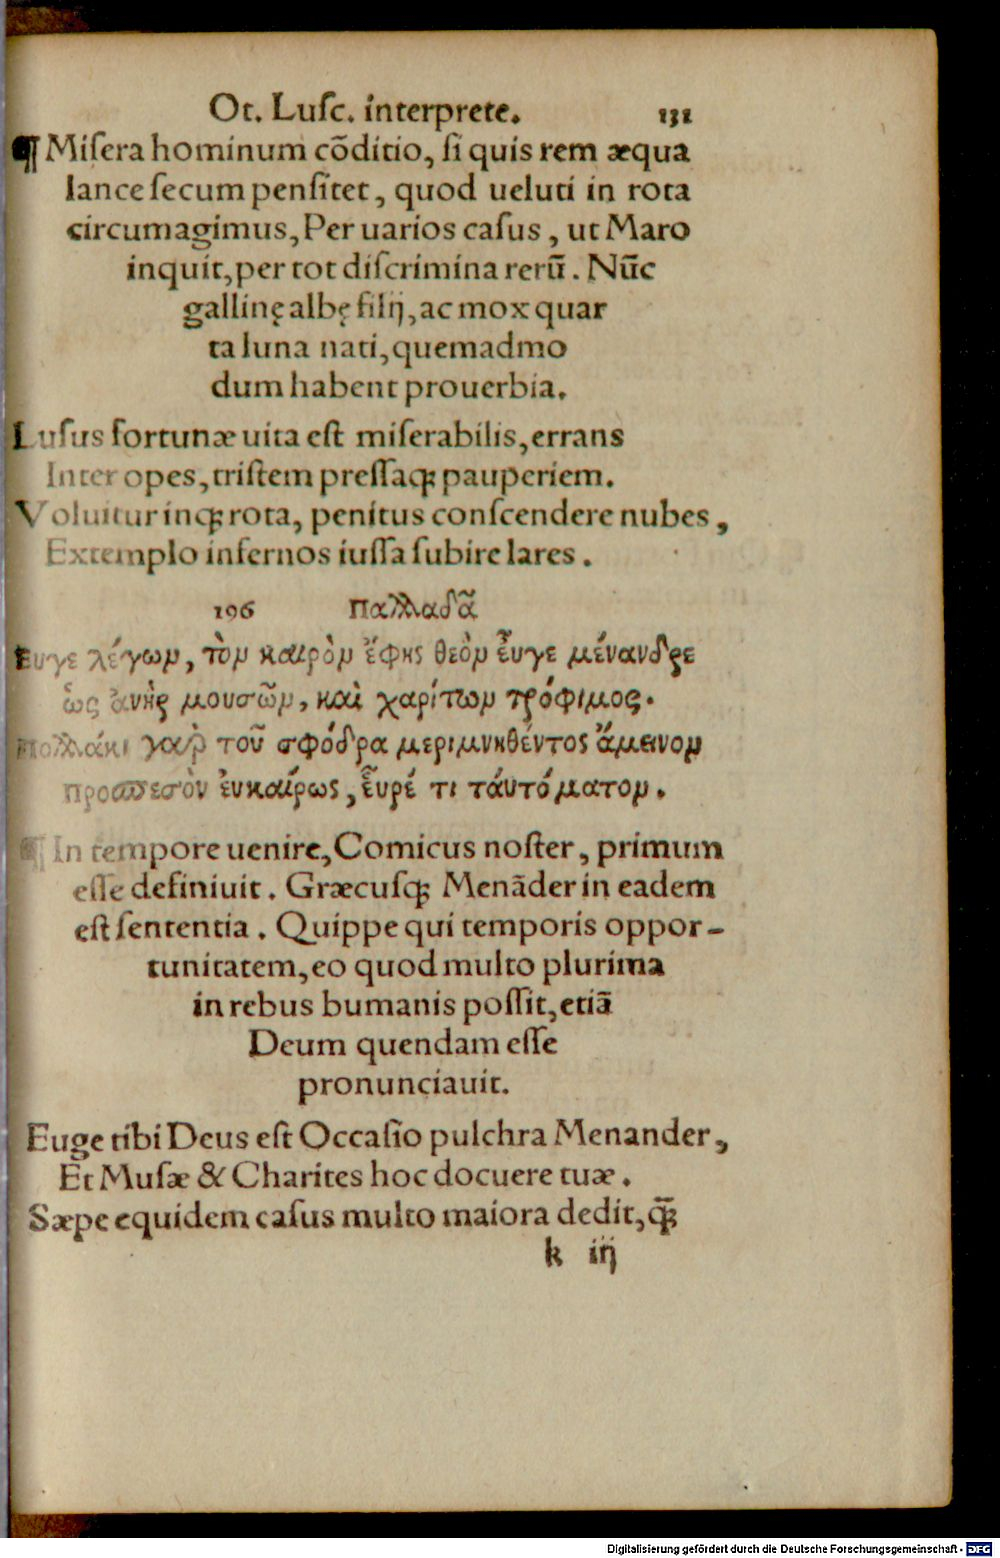 Ot. Lusc. interprete. 131
¶ Misera hominum cōditio, si quis rem æqua
lance secum pensitet, quod ueluti in rota
circumagimus, Per uarios casus, ut Maro
inquit, per tot discrimina rerū. Nūc
gallinę albę filij, ac mox quar
ta luna nati, quemadmo
dum habent prouerbia.
Lusus fortunæ uita est miserabilis, errans
Inter opes, tristem pressaq; pauperiem.
Voluitur inq; rota, penitus conscendere nubes,
Extemplo infernos iussa subire lares.
196 Παλλαδᾶ
Ευγε λέγωμ, τὸμ καιρὸμ ἔφης θεὸμ εὖγε μένανδρε
ὡς ἀνὴρ μουσῶμ, καὶ χαρίτωμ τρόφιμος.
Πολλάκι γαρ τοῦ σφόδρα μεριμνηθέντος ἄμεινομ
προσπεσὸν ἐυκαίρως, εὗρέ τι τἀυτόματομ.
¶ In tempore uenire, Comicus noster, primum
esse definiuit. Græcusq; Menāder in eadem
est sententia. Quippe qui temporis oppor-
tunitatem, eo quod multo plurima
in rebus bumanis possit, etiā
Deum quendam esse
pronunciauit.
Euge tibi Deus est Occasio pulchra Menander,
Et Musæ & Charites hoc docuere tuæ.
Sæpe equidem casus multo maiora dedit, q̄;
k iij
Digitalisierung gefördert durch die Deutsche Forschungsgemeinschaft - DFG